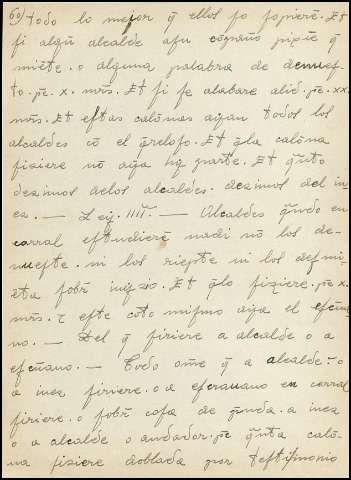 60) todo lo mejor q̃ ellos ſo ſopierẽ. Et
ſi algũ alcalde aſu cõpaño dixiẽ q̃
miẽte. o alguna palabra de denueſ-
to. pe. x. mrs. Et ſi ſe alabare alid. pe. xx.
mrs. Et eſtas calõnas ayan todos los
alcaldes cõ el q̃relofo. Et q̃la calõna
fiziere nõ aya hy parte. Et q̃nto
dezimos delos alcaldes. dezimos del iu
ez. — Ley. IIIIª. — Alcaldes q̃ndo en
corral eſtudierẽ nadi nõ los de-
nueſte. ni los riepte ni los deſmi-
ẽta ſobr̃ iuyzio. Et q̃lo fiziere. pe x.
mrs. τ eſte coto miſmo aya el eſcña-
no. — Del q̃ firiere a alcalde o a
eſcriuano. — Todo ome q̃ a alcalde. o
a iuez firiere. o a eſcriuano en corral
firiere. o ſobr̃ coſa de q̃nda. a iuez
o a alcalde o andador. pe q̃nta calõ-
na fiziere doblada por teſtimonio